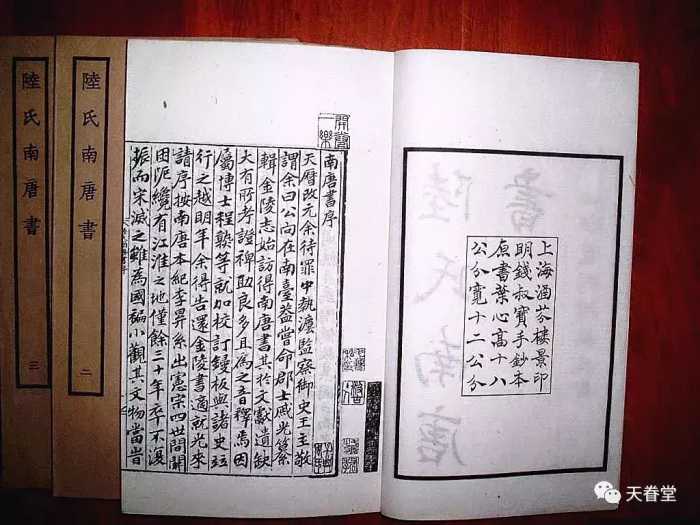 上海涵芬樓景印
明錢叔寶手鈔本
原書葉心高十八
公分寬十二公分
開卷
一樂
南唐書序
天曆改元余待罪中執灋監察御史王主敬
謂余曰公向在南臺蓋嘗命郡士戚光纂
輯金陵志始訪得南唐書其於文獻遺缺
大有所考證裨助良多且為之音釋焉因
屬博士程塾等就加校訂鋟板與諸史竝
行之越明年余得告還金陵書適就光來
請序按南唐本紀李昪系出憲宗四世間關
困阨纔有江淮之地僅餘三十年卒不復
振而宋滅之雖為國褊小觀其文物當旹
陸氏南唐書 二
陸氏南唐書 三
天眷堂